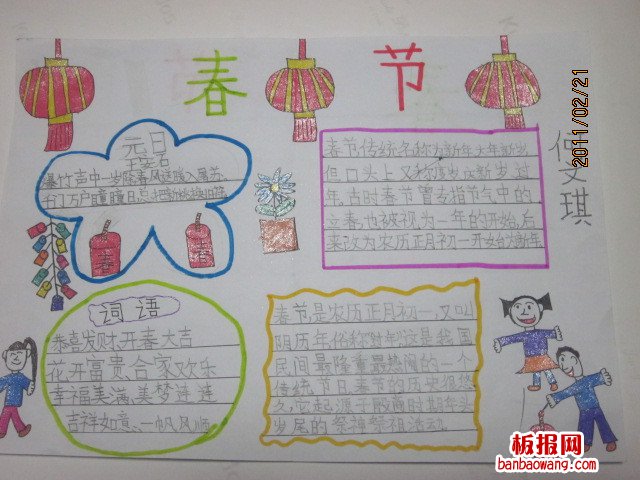 春 节
2011/02/21
元日
王安石
爆竹声中一岁除春风送暖入屠苏
千门万户曈曈日总把新桃换旧符
春 春
春节传统名称为新年大年新岁
但口头上又称度岁庆新岁过
年古时春节曾专指节气中的
立春也被视为一年的开始后
来改为农历正月初一开始为新年
琪
词语
恭喜发财、开春大吉
花开富贵、合家欢乐
幸福美满、美梦连连
吉祥如意、一帆风顺
春节是农历正月初一又叫
阴历年俗称过年这是我国
民间最隆重最热闹的一个
传统节日春节的历史很悠
久它起源于殷商时期年头
岁尾的祭神祭祖活动
板报网
banbaowang.com